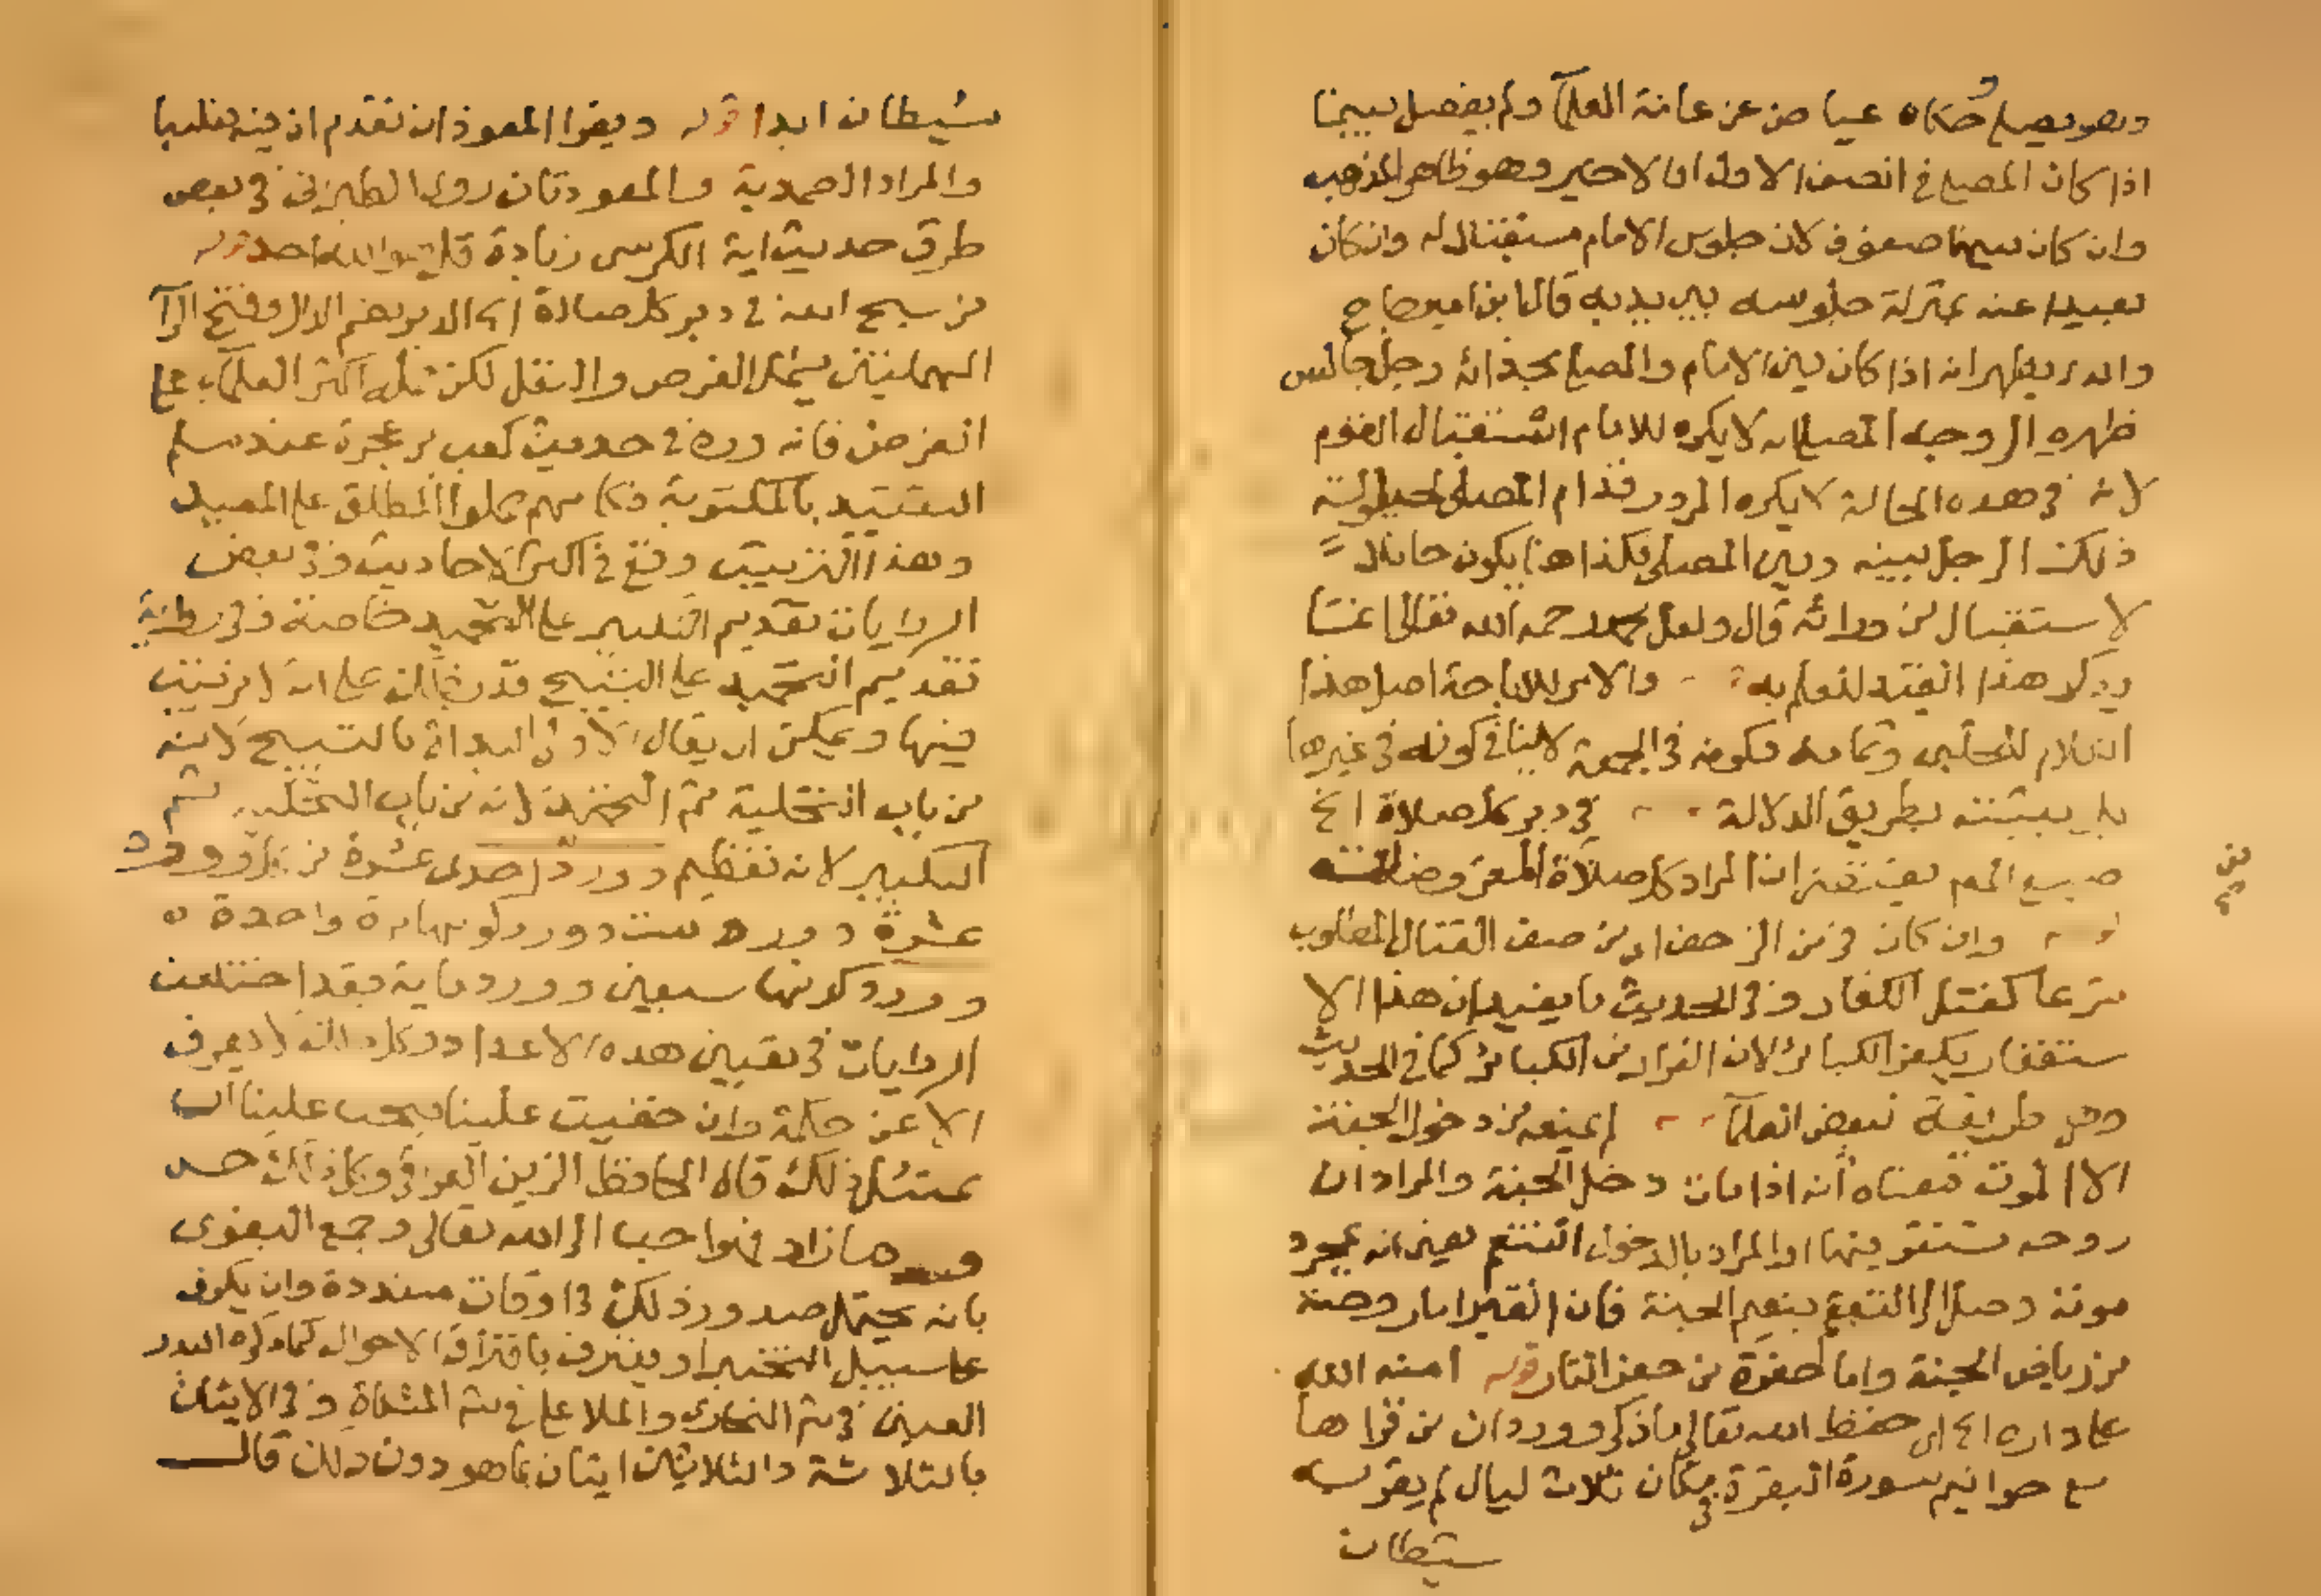 وهو يصلي حكاه عياض عن عامة العلمآ ولم يفصل بينما
اذا كان المصلي في الصف الاول او الاخير وهو ظاهر المذهب
وان كان بينهما صفوف لان جلوس الامام مستقبلا له وان كان
بعيدا عنه بمنزلة جلوسه بين يديه قال ابن امير حاج
والذي يظهر انه اذا كان بين الامام والمصلي بحذائه رجل جالس
ظهره الى وجه المصلي انه لا يكره للامام استقبال القوم
لانه في هذه الحالة لا يكره المرور قدام المصلي لحيلولته
ذلك الرجل بينه وبين المصلي فكذا هنا يكون حائلا
لاستقبال من ورائه قال ولعل محمد رحمه الله تعالى انما
يذكر هذا القيد للعلم به والامر للاباحة اصل هذا
الكلام للحلبي وتمامه فكونه في الجمعة لا ينافي كونه في غيرها
بل يبثبته بطريق الدلالة في دبر كل صلاة الخ
صنيع المص يقتضي ان المراد كل صلاة المفروضات
وان كان فر من الزحف اي من صف القتال المطلوب
شرعا كقتل الكفار وفي الحديث ما يفيد ان هذا الا
ستغفار يكفر الكبائر لان الفرار من الكبائر كما في الحديث
وهي طريقة لبعض العلمآ لم يمنعه من دخول الجنة
الا الموت معناه انه اذا مات دخل الجنة والمراد ان
روحه تستقر فيها او المراد بالدخول التنعم يعني انه بمجرد
موته وصل الى التنعم بنعيم الجنة فان القبر اما روضة
من رياض الجنة واما حفرة من حفر النار قوله امنه الله
على داره الخ اي حفظ الله تعالى ما ذكر وورد ان من قراها
مع خواتيم سورة البقرة في مكان ثلاث ليال لم يقربه
شيطان
شيطان ابدا قوله ويقرا المعوذات تقدم ان فيه تغليبا
والمراد الصمدية والمعوذتان روى الطبراني في بعض
طرق حديث اية الكرسي زيادة قل هو الله احد قوله
من سبح الله في دبر كل صلاة اي الدبر بضم الدال وفتح الرآ
المهملتين يشمل الفرض والنفل لكن حمله اكثر العلمآء على
الفرض فانه ورد في حديث كعب بن عجرة عند مسلم
التقييد بالمكتوبة وكانهم حملوا المطلق على المقيد
وهذا الترتيب وقع في اكثر الاحاديث وفي بعض
الروايات تقديم التكبير على التحميد خاصة وفي رواية
تقديم التحميد على التسبيح فدل ذلك على انه لا ترتيب
فيها ويمكن ان يقال الاولى البداة بالتسبيح لانه
من باب التخلية ثم التحميد لانه من باب التحلية ثم
التكبير لانه تعظيم وورد احدى عشرة وورد
عشرة وورد ست وورد كونها مرة واحدة
وورد كونها سبعين وورد ماية فقد اختلفت
الروايات في تعيين هذه الاعداد وكل ذلك لا يعرف
الا عن حكمة وان خفيت علينا فيجب علينا ان
نمتثل ذلك قاله الحافظ الزين العراقي وكل ذلك حسن
وما زاد فهو احب الى الله تعالى وجمع البغوى
بانه يحتمل صدور ذلك في اوقات متعددة وان يكون
على سبيل التخيير او يفترق بافتراق الاحوال كما ذكره البدر
العيني في شم البخاري والملا علي في شم المشكاة وفي الاتيان
بالثلاثة والثلاثين اتيان بما هو دون ذلك قال